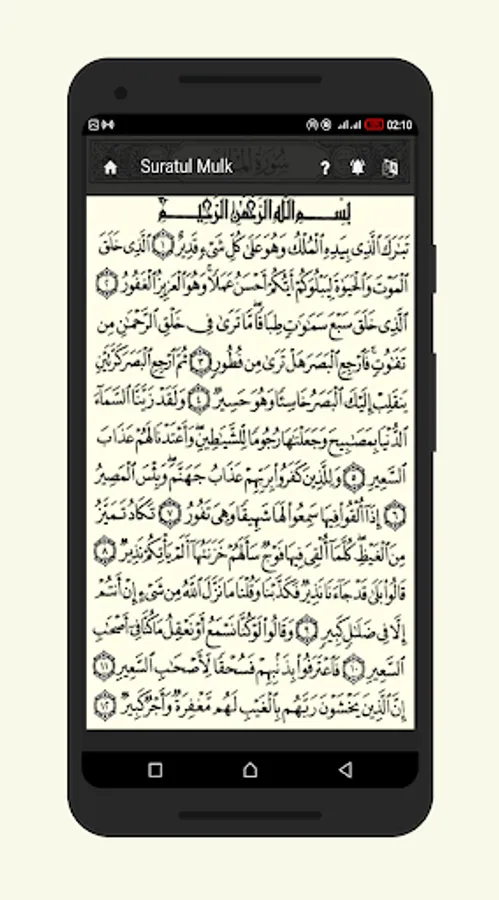 02:10
Suratul Mulk
بِسْمِ اللَّهِ الرَّحْمَٰنِ الرَّحِيمِ
تَبَٰرَكَ ٱلَّذِى بِيَدِهِ ٱلْمُلْكُ وَهُوَ عَلَىٰ كُلِّ شَىْءٍ قَدِيرٌ ١ ٱلَّذِى خَلَقَ
ٱلْمَوْتَ وَٱلْحَيَوٰةَ لِيَبْلُوَكُمْ أَيُّكُمْ أَحْسَنُ عَمَلًا وَهُوَ ٱلْعَزِيزُ ٱلْغَفُورُ ٢
ٱلَّذِى خَلَقَ سَبْعَ سَمَٰوَٰتٍ طِبَاقًا مَّا تَرَىٰ فِى خَلْقِ ٱلرَّحْمَٰنِ مِن
تَفَٰوُتٍ فَٱرْجِعِ ٱلْبَصَرَ هَلْ تَرَىٰ مِن فُطُورٍ ٣ ثُمَّ ٱرْجِعِ ٱلْبَصَرَ كَرَّتَيْنِ
يَنقَلِبْ إِلَيْكَ ٱلْبَصَرُ خَاسِئًا وَهُوَ حَسِيرٌ ٤ وَلَقَدْ زَيَّنَّا ٱلسَّمَآءَ
ٱلدُّنْيَا بِمَصَٰبِيحَ وَجَعَلْنَٰهَا رُجُومًا لِّلشَّيَٰطِينِ وَأَعْتَدْنَا لَهُمْ عَذَابَ
ٱلسَّعِيرِ ٥ وَلِلَّذِينَ كَفَرُوا۟ بِرَبِّهِمْ عَذَابُ جَهَنَّمَ وَبِئْسَ ٱلْمَصِيرُ
٦ إِذَآ أُلْقُوا۟ فِيهَا سَمِعُوا۟ لَهَا شَهِيقًا وَهِىَ تَفُورُ ٧ تَكَادُ تَمَيَّزُ
مِنَ ٱلْغَيْظِ كُلَّمَآ أُلْقِىَ فِيهَا فَوْجٌ سَأَلَهُمْ خَزَنَتُهَآ أَلَمْ يَأْتِكُمْ نَذِيرٌ ٨
قَالُوا۟ بَلَىٰ قَدْ جَآءَنَا نَذِيرٌ فَكَذَّبْنَا وَقُلْنَا مَا نَزَّلَ ٱللَّهُ مِن شَىْءٍ إِنْ أَنتُمْ
إِلَّا فِى ضَلَٰلٍ كَبِيرٍ ٩ وَقَالُوا۟ لَوْ كُنَّا نَسْمَعُ أَوْ نَعْقِلُ مَا كُنَّا فِىٓ أَصْحَٰبِ
ٱلسَّعِيرِ ١٠ فَٱعْتَرَفُوا۟ بِذَنۢبِهِمْ فَسُحْقًا لِّأَصْحَٰبِ ٱلسَّعِيرِ ١١
إِنَّ ٱلَّذِينَ يَخْشَوْنَ رَبَّهُم بِٱلْغَيْبِ لَهُم مَّغْفِرَةٌ وَأَجْرٌ كَبِيرٌ ١٢